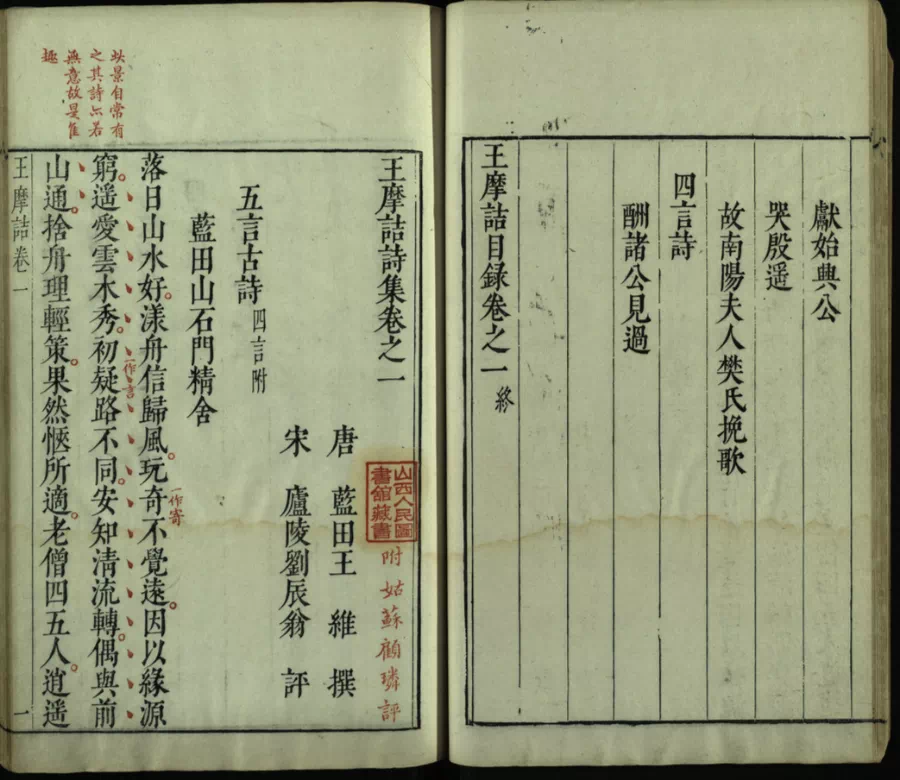 獻始興公
哭殷遥
故南陽夫人樊氏挽歌
四言詩
酬諸公見過
王摩詰目録卷之一 終
王摩詰詩集卷之一
山西人民圖
書館藏書
附姑蘇顧璘評
唐 藍田王 維 撰
宋 廬陵劉辰翁 評
五言古詩 四言附
藍田山石門精舍
落日山水好漾舟信歸風玩奇不覺遠因以緣源
一作寄
窮遥愛雲木秀初疑路不同安知清流轉偶與前
一作言
山通捨舟理輕策果然愜所適老僧四五人逍遥
王摩詰卷一
一
此景自常有
之其詩亦若
無意故是佳
趣